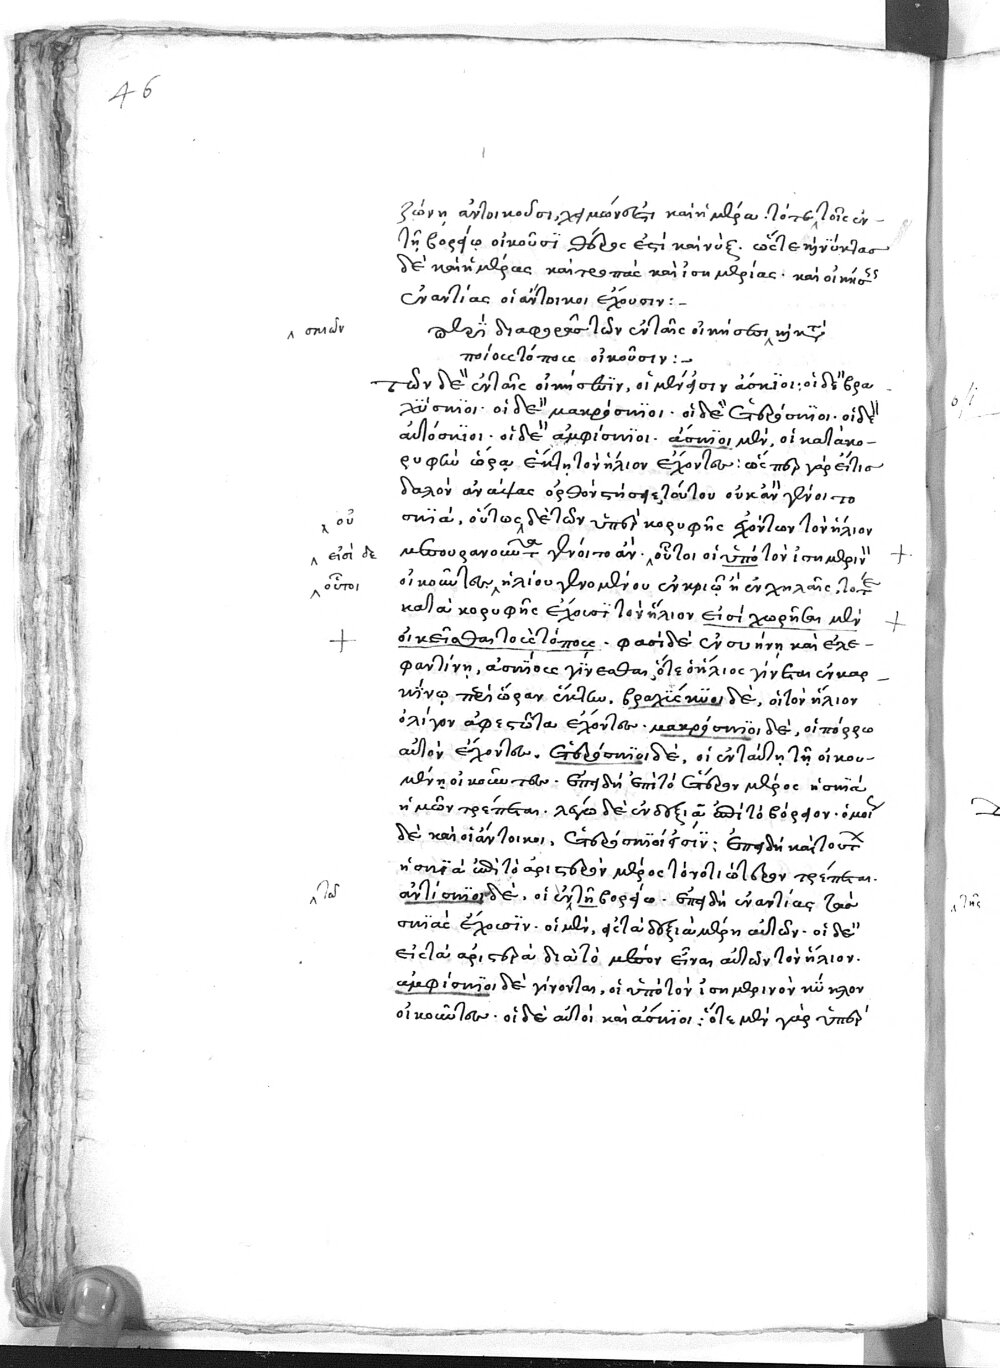 46
ζώνη ἀντοικοῦσι, χειμών ἐστι καὶ ἡμέρα. τότε τοῖς ἐν
τῇ βορείῳ οἰκοῦσι θέρος ἐστὶ καὶ νύξ. ὥστε καὶ νύκτας
δὲ καὶ ἡμέρας καὶ τροπὰς καὶ ἰσημερίας. καὶ οἰκήσεις
ἐναντίας οἱ ἄντοικοι ἔχουσιν:-
σκιῶν
περὶ διαφορᾶς τῶν ἐν ταῖς οἰκήσεσι καὶ
ποίους τόπους οἰκοῦσιν:-
Τῶν δὲ ἐν ταῖς οἰκήσεσιν, οἱ μέν εἰσιν ἄσκιοι: οἱ δὲ βρα
χύσκιοι. οἱ δὲ μακρόσκιοι. οἱ δὲ ἑτερόσκιοι. οἱ δὲ
ἀντόσκιοι. οἱ δὲ ἀμφίσκιοι. ἄσκιοι μὲν, οἱ κατὰ κο-
ρυφὴν ὥρᾳ ἕκτῃ τὸν ἥλιον ἔχοντες: ὥσπερ γὰρ εἴ τις
δαλὸν ἀνάψας ὀρθὸν στήσειε τούτου οὐκ ἂν γένοιτο
σκιὰ, οὕτως δὲ τῶν ὑπὲρ κορυφῆς ἐχόντων τὸν ἥλιον
οὐ
μεσουρανοῦντα γένοιτο ἄν. οὗτοι οἱ ὑπὸ τὸν ἰσημερινὸν
εἰσὶ δὲ
οἰκοῦντες, ἡλίου γενομένου ἐν κριῷ ἢ ἐν χηλαῖς, τότε
οὗτοι
κατὰ κορυφῆς ἔχουσι τὸν ἥλιον εἰσὶ χωρῆσαι μὲν
οἰκεῖσθαι τοὺς τόπους. φασὶ δὲ ἐν συήνῃ καὶ ἐλε-
φαντίνῃ, ἀσκίους γίνεσθαι, ὅτε ὁ ἥλιος γίνεται ἐν καρ-
κίνῳ περὶ ὥραν ἕκτην. βραχύσκιοι δὲ, οἱ τὸν ἥλιον
ὀλίγον ἀφεστῶτα ἔχοντες. μακρόσκιοι δὲ, οἱ πόρρω
αὐτὸν ἔχοντες. ἑτερόσκιοι δὲ, οἱ ἐν ταύτῃ τῇ οἰκου-
μένῃ οἰκοῦντες. ἐπειδὴ ἐπὶ τὸ ἕτερον μέρος ἡ σκιὰ
ἡμῶν τρέπεται. λέγω δὲ ἐν δεξιᾷ ἐπὶ τὸ βόρειον. ὁμοίως
δὲ καὶ οἱ ἄντοικοι, ἑτερόσκιοί εἰσιν: ἐπειδὴ καὶ τούτων
ἡ σκιὰ ἐπὶ τὸ ἀριστερὸν μέρος τὸ νοτιώτερον τρέπεται.
ἀντίσκιοι δὲ, οἱ ἐν τῇ βορείῳ. ἐπειδὴ ἐναντίας τὰς
σκιὰς ἔχουσιν. οἱ μὲν, εἰς τὰ δεξιὰ μέρη αὐτῶν. οἱ δὲ
εἰς τὰ ἀριστερὰ διὰ τὸ μέσον εἶναι αὐτῶν τὸν ἥλιον.
ἀμφίσκιοι δὲ γίνονται, οἱ ὑπὸ τὸν ἰσημερινὸν κύκλον
οἰκοῦντες. οἱ δὲ αὐτοὶ καὶ ἄσκιοι: ὅτε μὲν γὰρ ὑπὲρ
τῆς